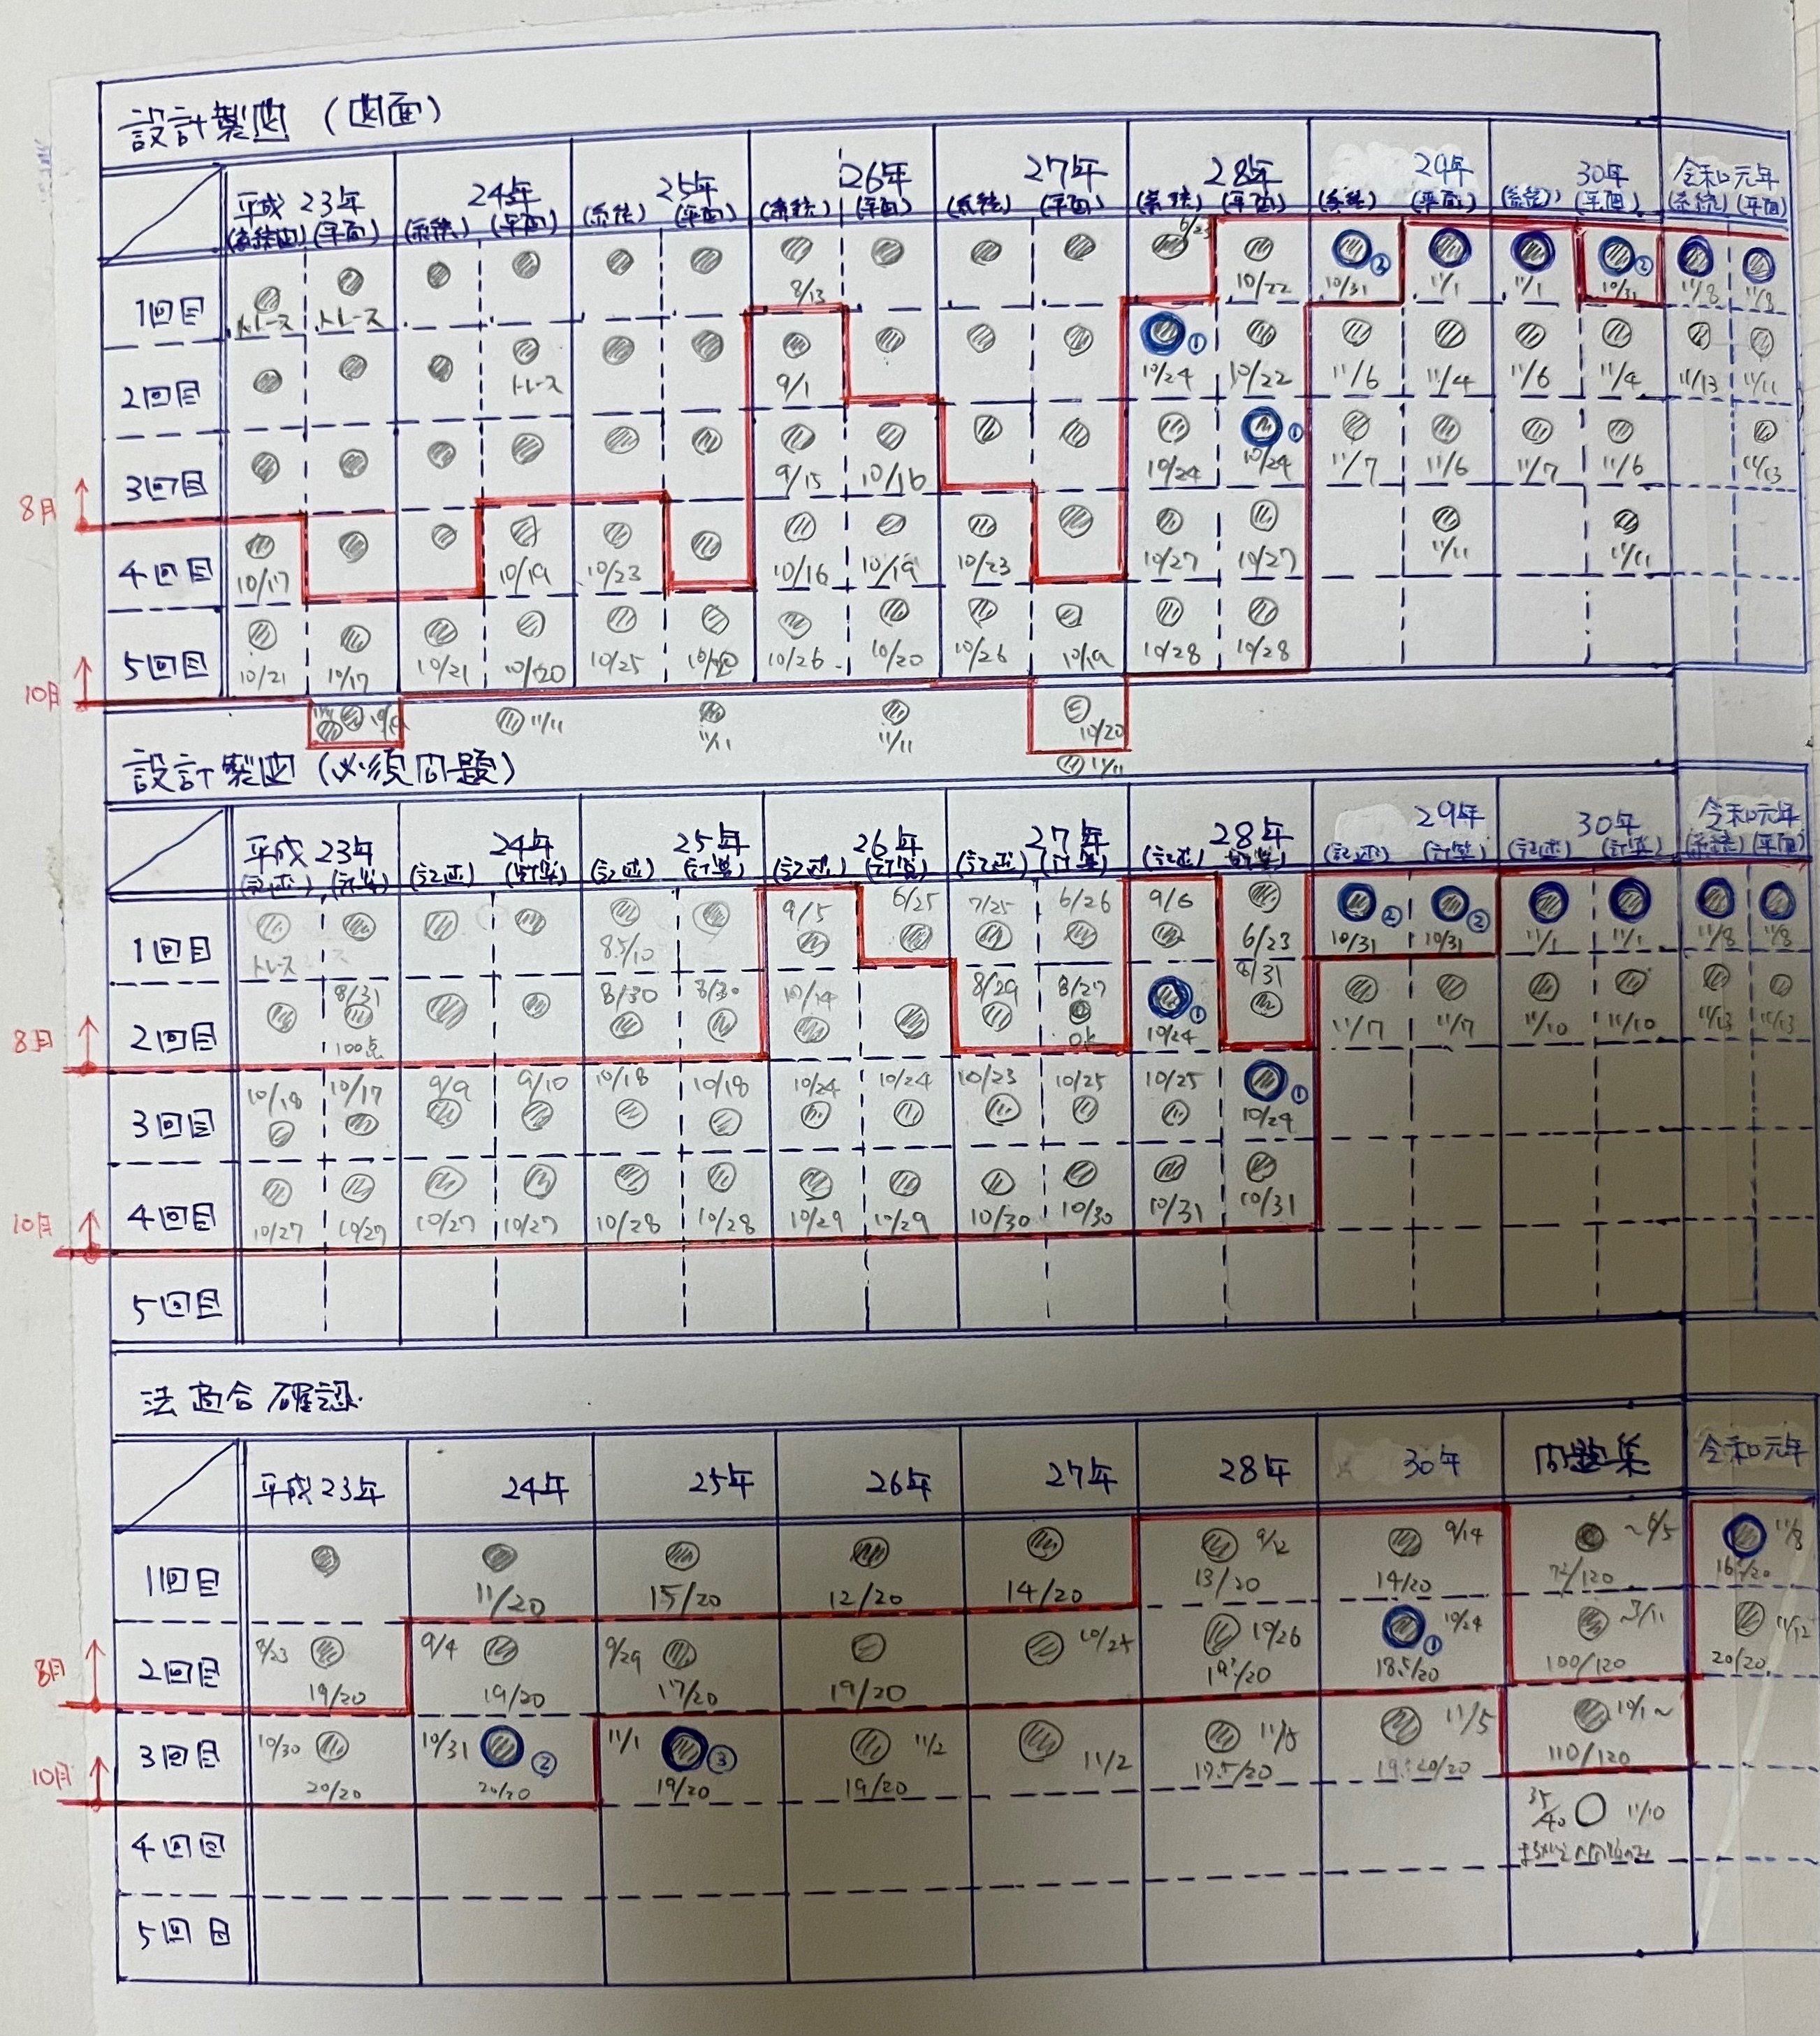 設計製図 (図面)
平成23年 24年 25年 26年 27年 28年 29年 30年 令和元年
(系統図) (平面) (系統) (平面) (系統) (平面) (系統) (平面) (系統) (平面) (系統) (平面) (系統) (平面) (系統) (平面) (系統) (平面)
6/23
1回目 トレース トレース 8/13 10/22 10/31 ② 11/1 11/1 10/31 ② 11/8 11/8
2回目 トレース 9/1 10/24 ① 10/22 11/6 11/4 11/6 11/4 11/13 11/11
3回目 9/15 10/16 10/24 10/24 ① 11/7 11/6 11/7 11/6 11/13
8月
4回目 10/17 10/19 10/23 10/16 10/19 10/23 10/27 10/27 11/11 11/11
5回目 10/21 10/17 10/21 10/20 10/25 10/20 10/26 10/20 10/26 10/19 10/28 10/28
10月
11/11 11/11 11/11 10/20
11/11
設計製図 (必須問題)
平成23年 24年 25年 26年 27年 28年 29年 30年 令和元年
(記述) (計算) (記述) (計算) (記述) (計算) (記述) (計算) (記述) (計算) (記述) (計算) (記述) (計算) (記述) (計算) (系統) (平面)
9/5 6/25 7/25 6/26 9/6
1回目 トレース 6/23 10/31 ② 10/31 ② 11/1 11/1 11/8 11/8
8/31 8/30 8/30 10/14 8/29 8/27 8/31
2回目 100点 OK 10/24 ① 11/7 11/7 11/10 11/10 11/13 11/13
8月
10/18 10/17 9/9 9/10 10/18 10/18 10/24 10/24 10/23 10/25 10/25
3回目 10/24 ①
4回目 10/27 10/27 10/27 10/27 10/28 10/28 10/29 10/29 10/30 10/30 10/31 10/31
10月
5回目
法適合確認
平成23年 24年 25年 26年 27年 28年 30年 問題集 令和元年
9/12 9/14 11/8
1回目 11/20 15/20 12/20 14/20 13/20 14/20
9/4 9/29 10/24 10/26 10/24 11/12
2回目 19/20 19/20 17/20 19/20 18.5/20 ① 100/120 20/20
8月
10/30 10/31 11/1 11/2 11/2 11/5 10/1~
3回目 20/20 20/20 ② 19/20 ③ 19/20 110/120
10月
35/40 11/10
4回目
5回目